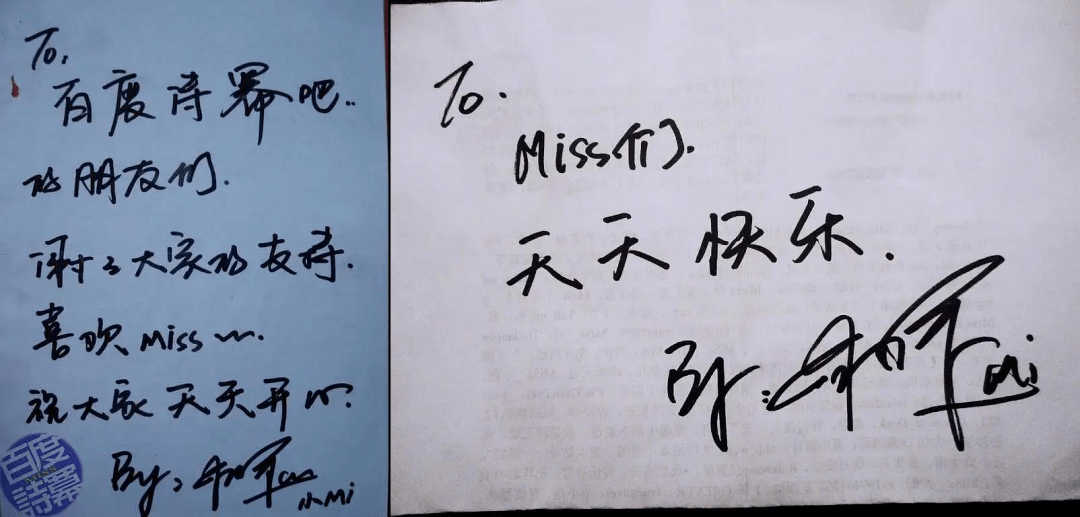 To,
百度诗幂吧..
的朋友们.
谢々大家的支持.
喜欢 Miss ~.
祝大家天天开心.
By: 小Mi
百度
詩冪
To.
Miss们.
天天快乐.
By: Mi